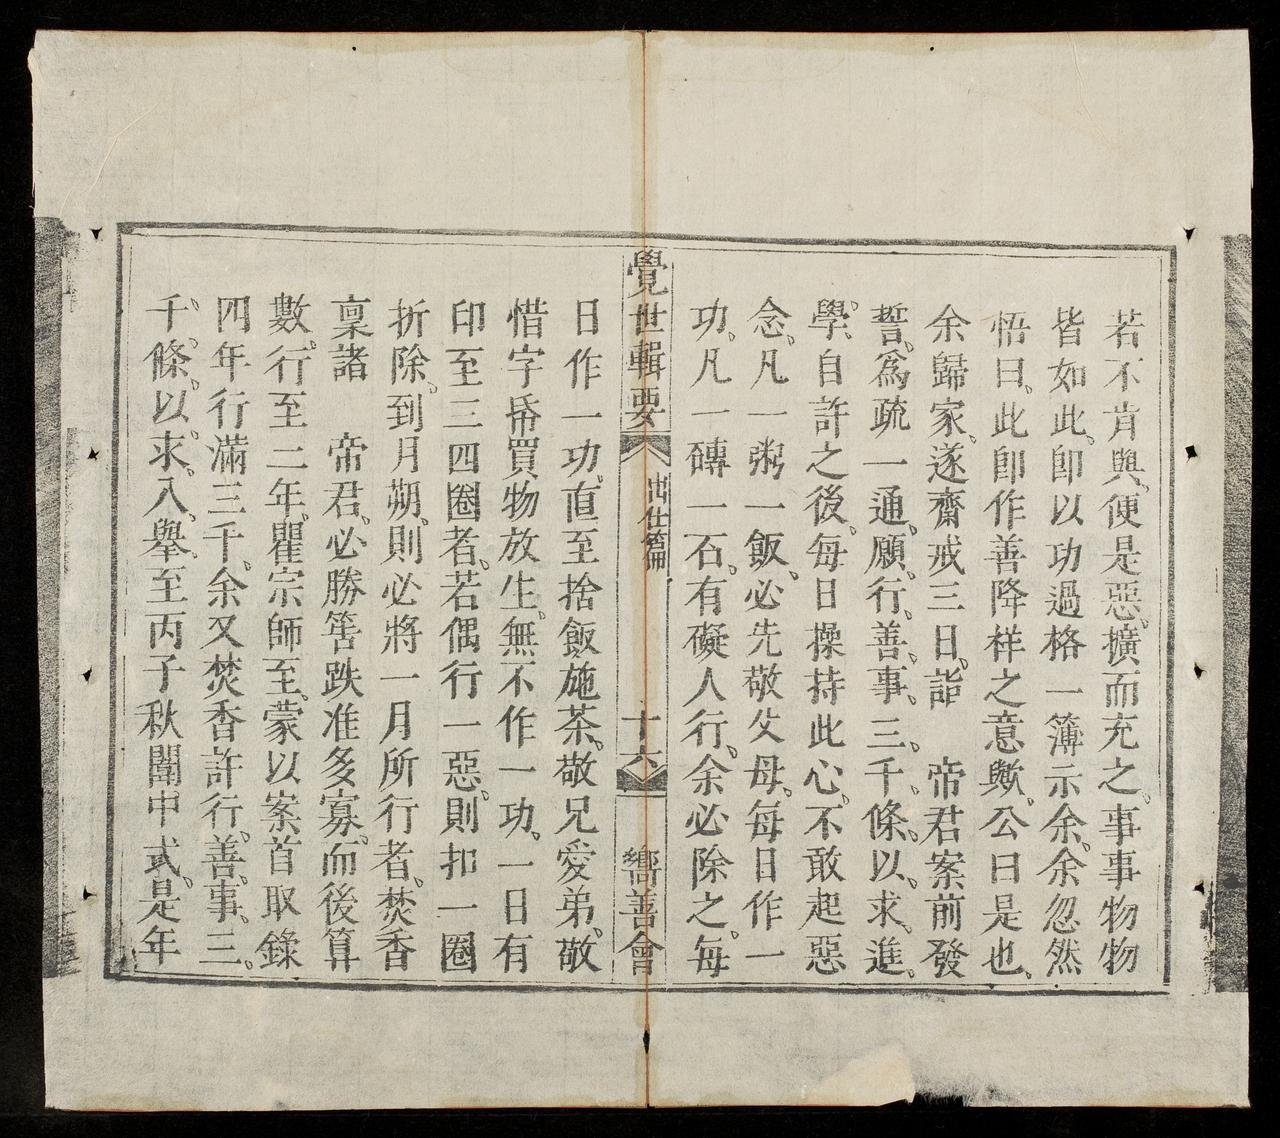 若不肯與便是惡擴而充之事事物物
皆如此卽以功過格一簿示余余忽然
悟曰此卽作善降祥之意歟公曰是也
余歸家遂齋戒三日詣　帝君案前發
誓爲疏一通願行善事三千條以求進
學自許之後每日操持此心不敢起惡
念凡一粥一飯必先敬父母每日作一
功凡一磚一石有礙人行余必除之每
覺世輯要　出仕篇　十六　嚮善會
日作一功直至捨飯施茶敬兄愛弟敬
惜字帋買物放生無不作一功一日有
印至三四圈者若偶行一惡則扣一圈
折除到月朔則必將一月所行者焚香
稟諸　帝君必勝筶跌准多寡而後算
數行至二年瞿宗師至蒙以案首取錄
四年行滿三千余又焚香許行善事三
千條以求入舉至丙子秋闈中式是年